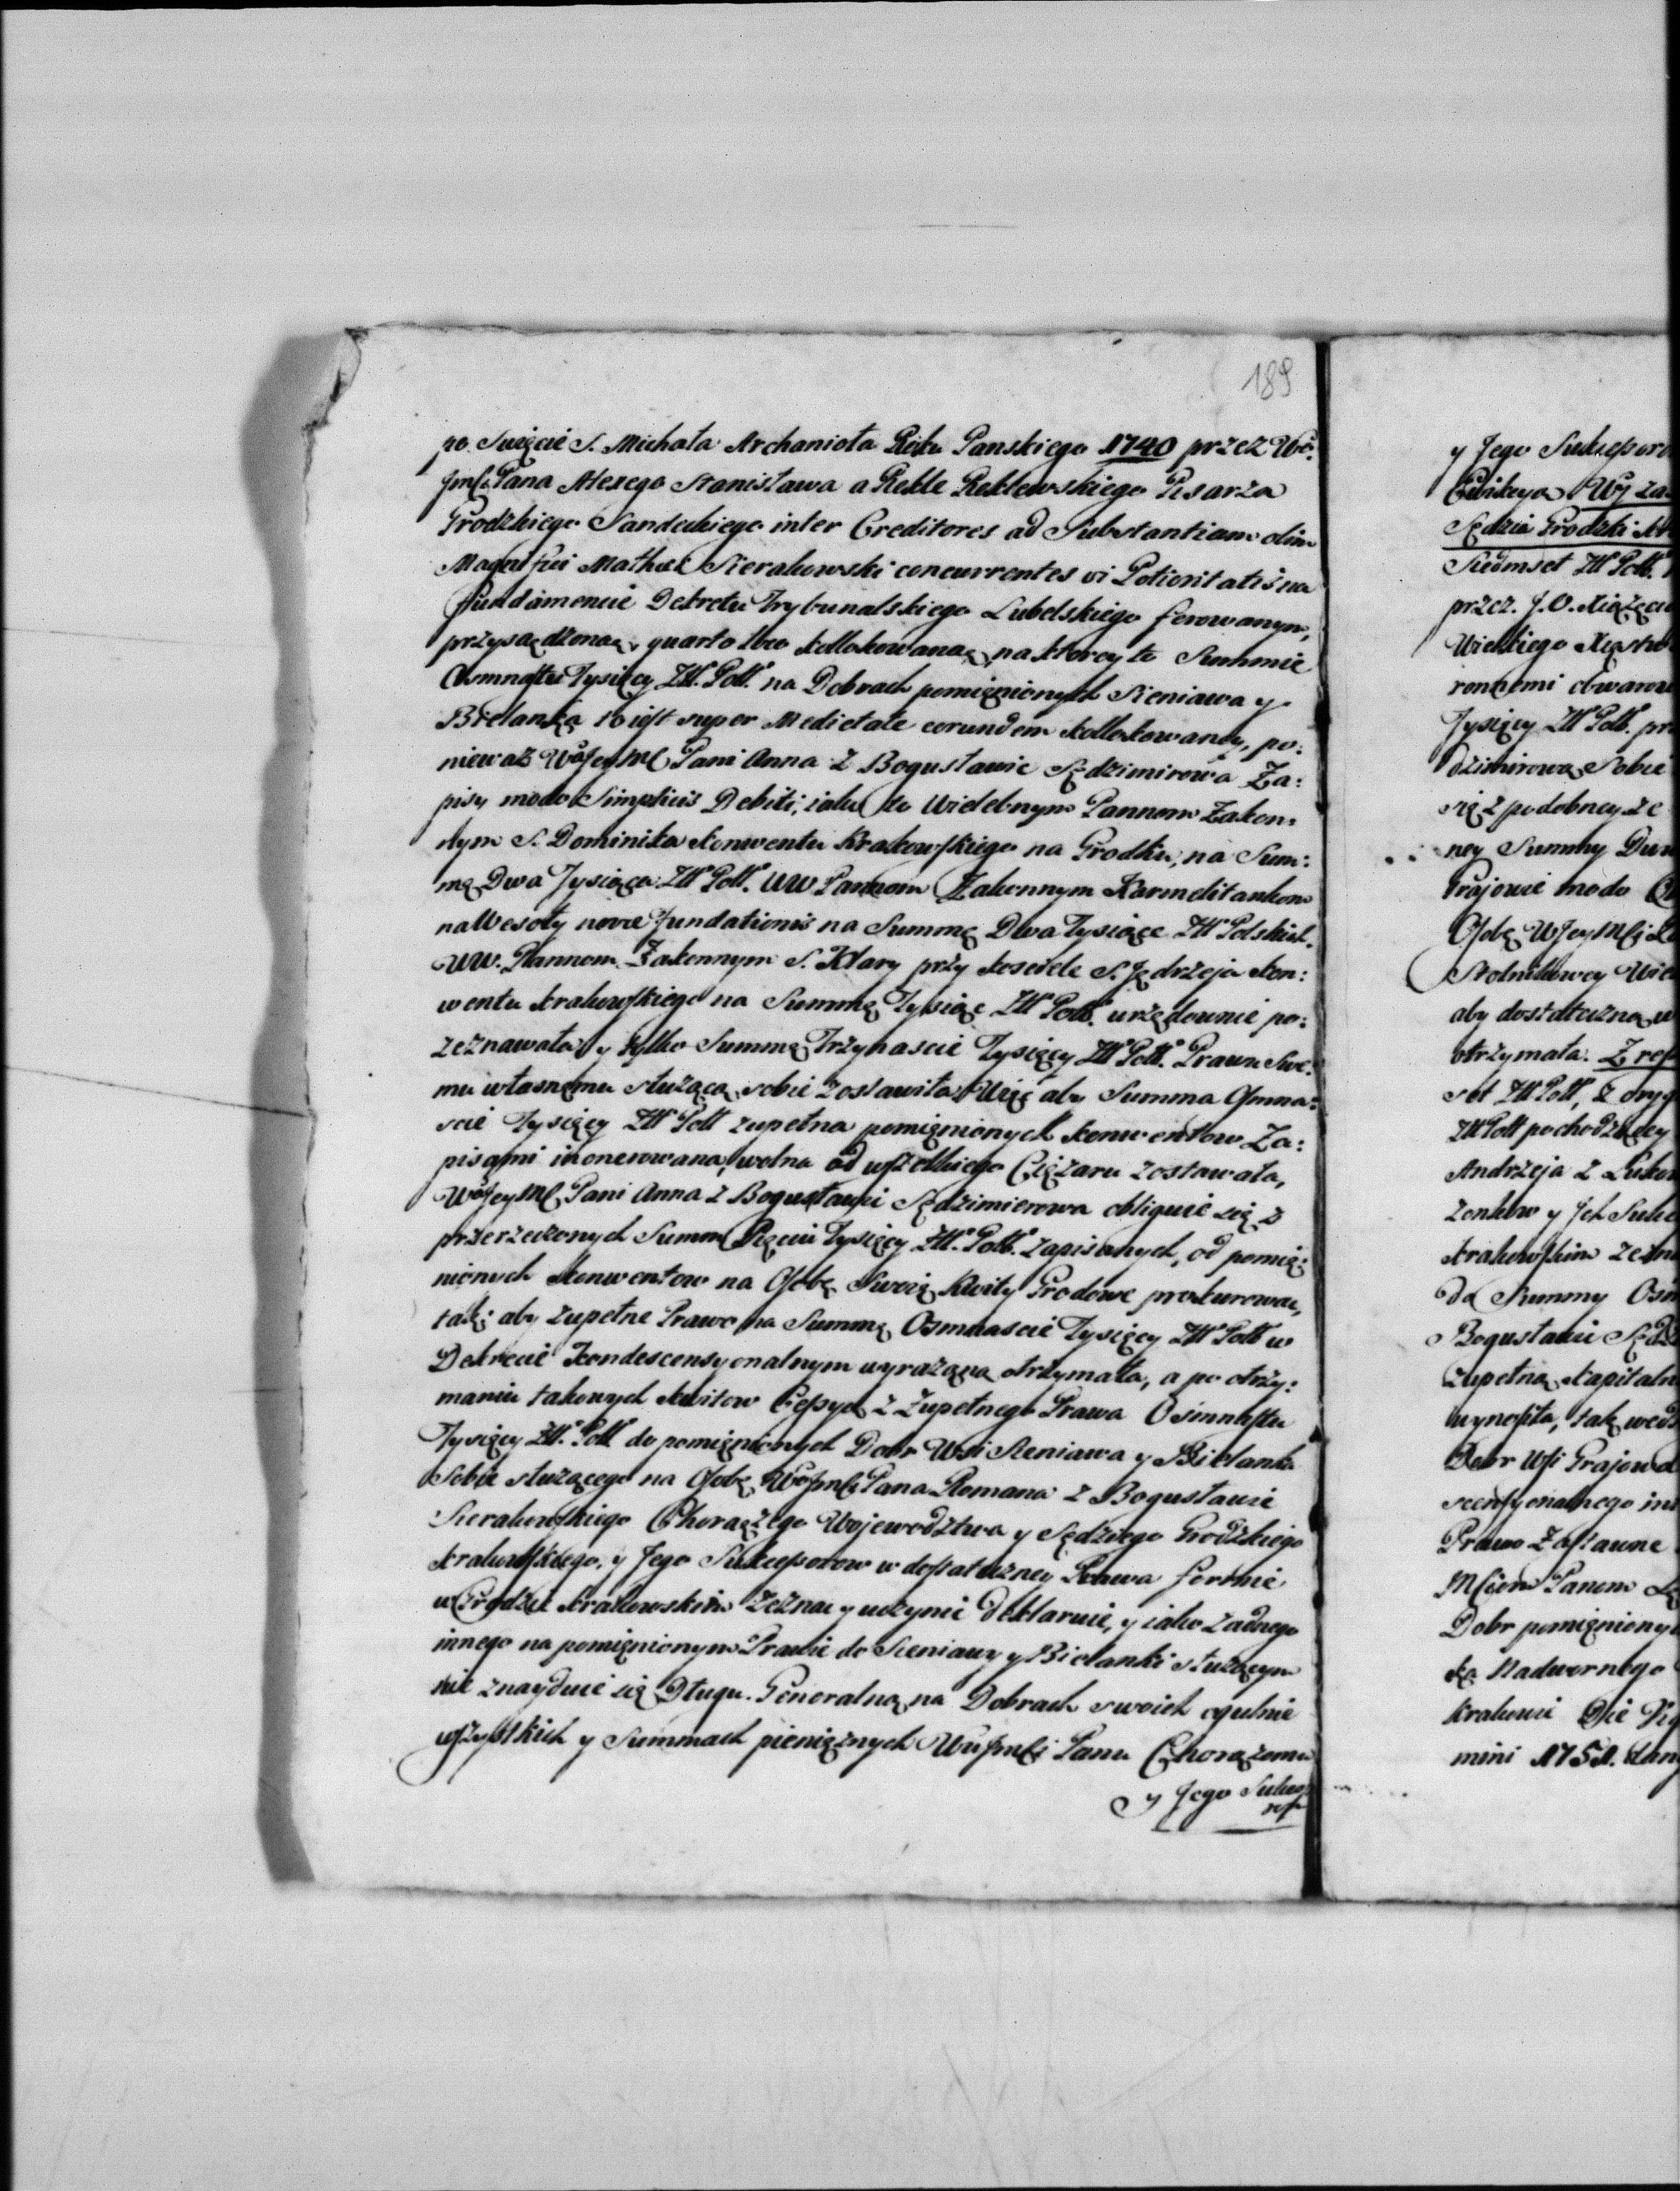 189
po Swięcie S. Michała Archanioła Roku Panskiego 1740 przez Wo:
JmCi Pana Alexego Stanisława a Rekle Reklewskiego Pisarza
Grodzkiego Sandeckiego inter Creditores ad Substantiam olim
Magnifici Mathiæ Sierakowski concurrentes vi Potioritatis na
fundamencie Dekretu Trybunalskiego Lubelskiego ferowanym,
przysądzoną, quarto loco kollokowaną, na ktorey to Summie
Osmnastu Tysięcy Złł. Poll. na Dobrach pomięnionych Sieniawa y
Bielanka id est super Medietate eorundem kollokowaney, po:
niewaz WoJeyMC Pani Anna z Bogusławic Sędzimirowa Za:
pisy modo Simplicis Debiti, iako to Wielebnym Pannom Zakon:
nym S. Dominika Konwentu Krakowskiego na Grodku, na Sum:
mę Dwa Tysiąca Złł Poll. WW Pannom Zakonnym Karmelitankom
na Wesoły novæ fundationis na Summę Dwa Tysiące Złł Polskich.
WW. Pannom Zakonnym S. Klary przy Kosciele S. Jędrzeja Kon:
wentu Krakowskiego na Summę Tysiąc Złł Poll. urzędownie po:
zeznawała, y tylko Summę Trzynascie Tysięcy Złł Poll. Prawu Swe:
mu własnemu służącą, sobie zostawiła Więc aby Summa Osmna:
scie Tysięcy Złł Poll zupełna pomięnionych Konwentow Za:
pisami inonerowana, wolna od wszelkiego Ciężaru zostawała,
WoJeyMC Pani Anna z Bogusławic Sędzimierowa obliguie się z
przerzeczonych Summ Pięciu Tysięcy Złł. Poll. zapisanych, od pomię:
nionych Konwentow na Osobę Swoię Kwity Grodowe prokurować,
tak: aby zupełne Prawo na Summę Osmnascie Tysięcy Złł Poll w
Dekrecie Kondescensyonalnym wyrażoną otrzymała, a po otrzy:
maniu takowych Kwitow Cessyą z zupełnego Prawa Osmnastu
Tysięcy Złł. Poll. do pomięnionych Dobr Wsi Sieniawa y Bielanka
Sobie służącego na Osobę WoJmCi Pana Romana z Bogusławic
Sierakowskiego Chorążego Wojewodztwa y Sędziego Grodzkiego
Krakowskiego, y Jego Sukcessorow w dostateczney Prawa formie
w Grodzie Krakowskim zeznać y uczynić deklaruie, y iako żadnego
innego na pomięnionym Prawie do Sieniawy y Bielanki służącym
nie znayduie się Długu. Generalną na Dobrach swoich ogulnie
wszystkich y Summach pieniężnych WuJmCi Panu Chorążemu
y Jego Sukces
y Jego Sukcessoro
Sędzia Grodzki
Siedmset Złł Poll.
przez J. O. Xiążęcia
Wielkiego Xięstwa
ronnemi obwarow
Tysięcy Złł Poll. pr
dzimirowa, Sobie
się z podobney ze
ney Summy Du
Osobę WJeyMCi
Stolnikowey Wie
aby dostateczną w
otrzymała.
set Złł Poll, z
Złł Poll pochodzącey
Andrzeja z
żonkow y Jch Sukc
Krakowskim zezn
do Summy Osm
Bogusławic Sędz
zupełną, Kapitaln
wynosiła, tak wed
Dobr Wsi Grajow
scensyonalnego in
Prawo Zastawne
MCiom Panom
Dobr pomięniony
ka Nadwornego
Krakowie Die
mini 1751.